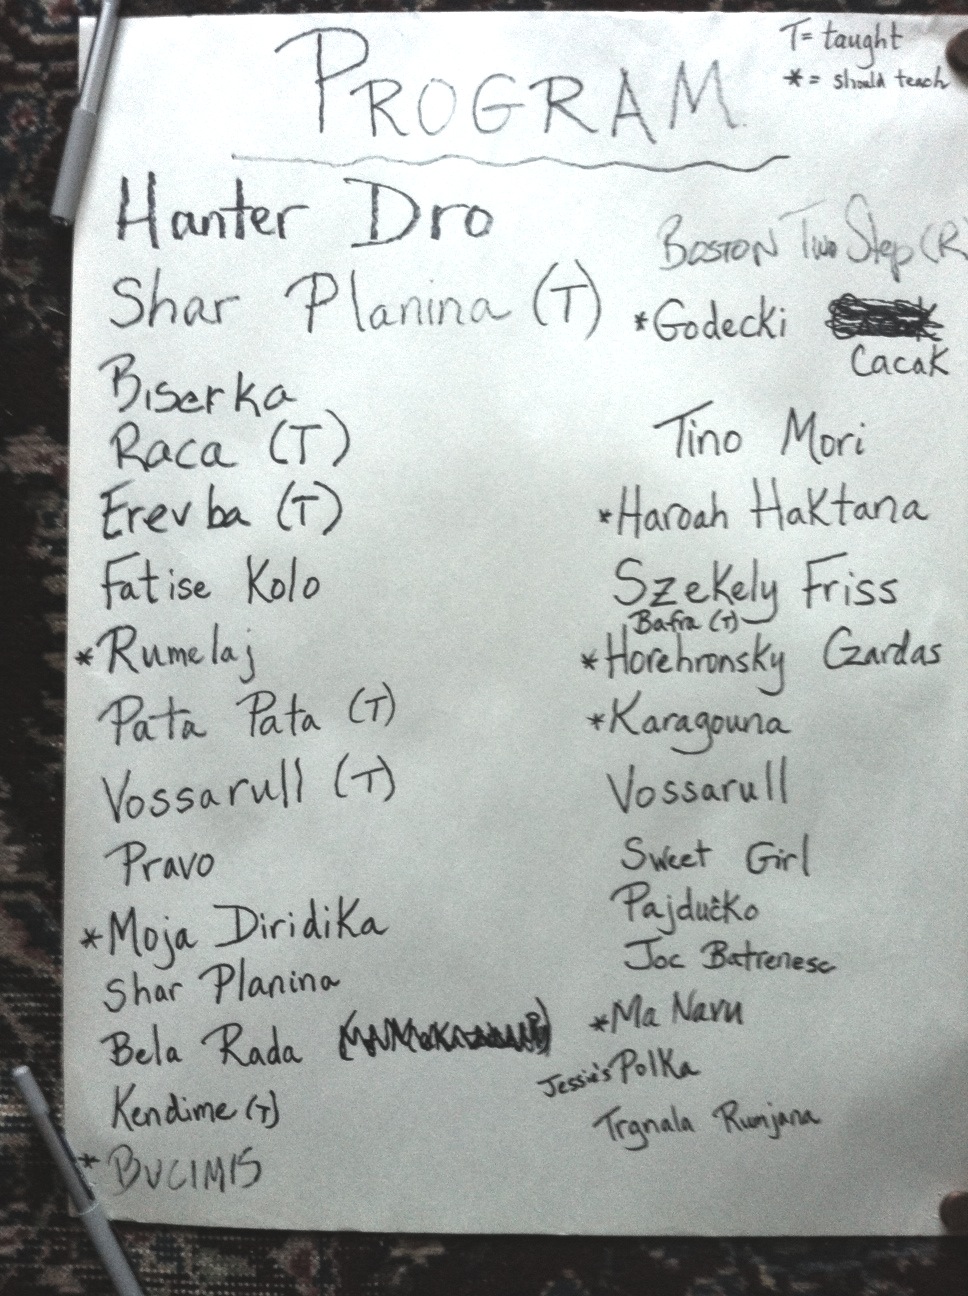 PROGRAM
T= taught
*= should teach
Hanter Dro
Shar Planina (T)
Biserka
Raca (T)
Erev ba (T)
Fatise Kolo
*Rumelaj
Pata Pata (T)
Vossarull (T)
Pravo
*Moja Diridika
Shar Planina
Bela Rada
Kendime (T)
*BUCIMIS
BOSTON Two Step (R)
*Godecki
Cacak
Tino Mori
*Haroah Haktana
Szekely Friss
Bafra (T)
*Horehronsky Czardas
*Karagouna
Vossarull
Sweet Girl
Pajdučko
Joc Batrenesc
*Ma Navu
Jessie's Polka
Trgnala Rumjana